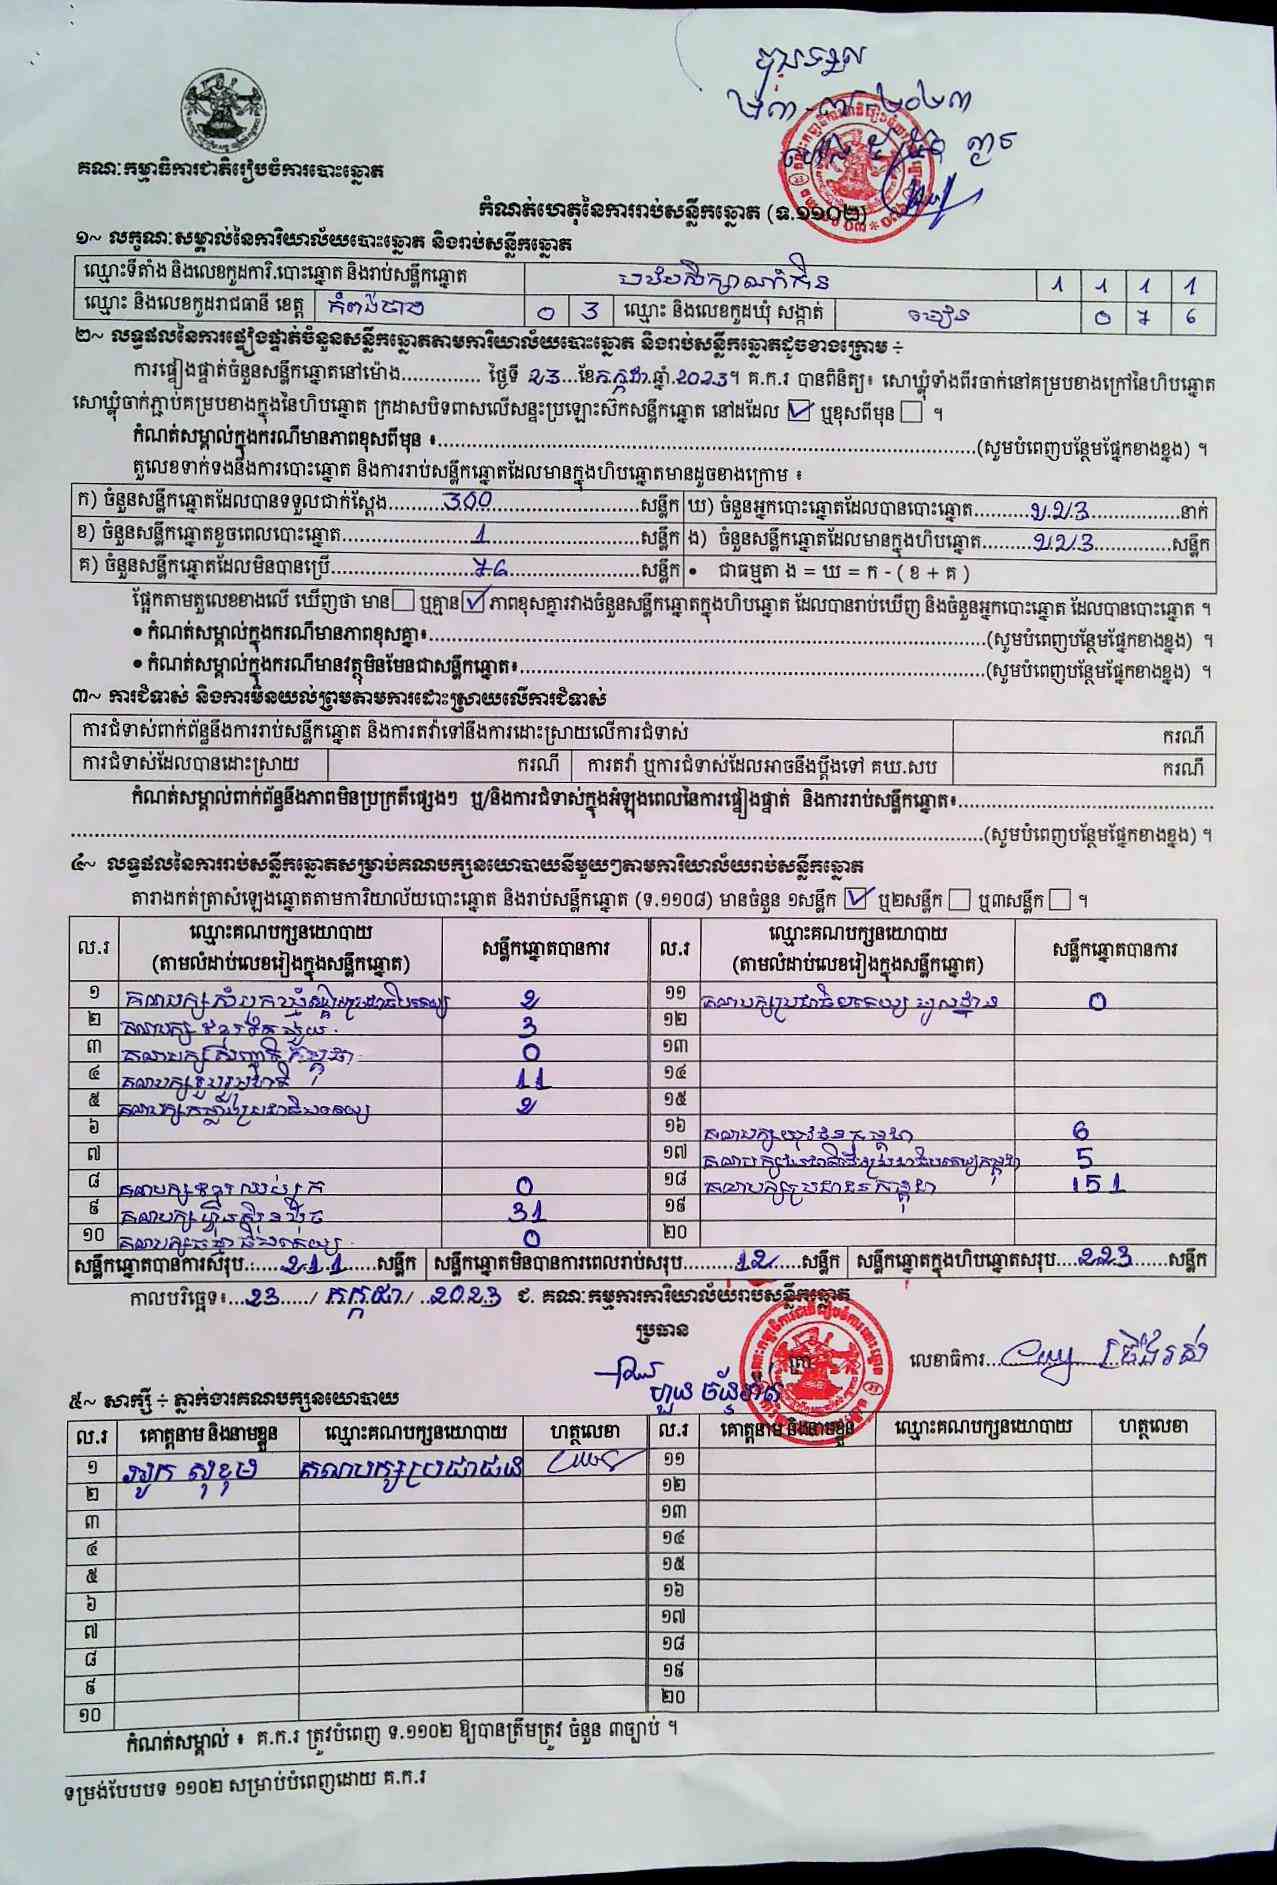 បានទទួល
២៣-៧-២០២៣
គណៈកម្មាធិការជាតិរៀបចំការបោះឆ្នោត
កំណត់ហេតុនៃការរាប់សន្លឹកឆ្នោត (ទ.១១០២)
១~ លក្ខណៈសម្គាល់នៃការិយាល័យបោះឆ្នោត និងរាប់សន្លឹកឆ្នោត
ឈ្មោះទីតាំង និងលេខកូដការិ.បោះឆ្នោត និងរាប់សន្លឹកឆ្នោត 1 1 1 1
ឈ្មោះ និងលេខកូដរាជធានី ខេត្ត កំពង់ចាម 0 3 ឈ្មោះ និងលេខកូដឃុំ សង្កាត់ 0 7 6
២~ លទ្ធផលនៃការផ្ទៀងផ្ទាត់ចំនួនសន្លឹកឆ្នោតតាមការិយាល័យបោះឆ្នោត និងរាប់សន្លឹកឆ្នោតដូចខាងក្រោម ÷
ការផ្ទៀងផ្ទាត់ចំនួនសន្លឹកឆ្នោតនៅម៉ោង.............. ថ្ងៃទី 23...ខែកក្កដា.ឆ្នាំ.2023។ គ.ក.រ បានពិនិត្យ៖ សោឃ្លុំទាំងពីរចាក់នៅគម្របខាងក្រៅនៃហិបឆ្នោត
សោឃ្លុំចាក់ភ្ជាប់គម្របខាងក្នុងនៃហិបឆ្នោត ក្រដាសបិទពាសលើសន្ទះប្រឡោះស៊កសន្លឹកឆ្នោត នៅដដែល ☑ ឬខុសពីមុន ☐ ។
កំណត់សម្គាល់ក្នុងករណីមានភាពខុសពីមុន ៖........................(សូមបំពេញបន្ថែមផ្នែកខាងខ្នង) ។
តួលេខទាក់ទងនឹងការបោះឆ្នោត និងការរាប់សន្លឹកឆ្នោតដែលមានក្នុងហិបឆ្នោតមានដូចខាងក្រោម ៖
ក) ចំនួនសន្លឹកឆ្នោតដែលបានទទួលជាក់ស្តែង..........300..........សន្លឹក ឃ) ចំនួនអ្នកបោះឆ្នោតដែលបានបោះឆ្នោត..........223..........នាក់
ខ) ចំនួនសន្លឹកឆ្នោតខូចពេលបោះឆ្នោត..........1..........សន្លឹក ង) ចំនួនសន្លឹកឆ្នោតដែលមានក្នុងហិបឆ្នោត..........223..........សន្លឹក
គ) ចំនួនសន្លឹកឆ្នោតដែលមិនបានប្រើ..........76..........សន្លឹក • ជាធម្មតា ង = ឃ = ក - ( ខ + គ )
ផ្អែកតាមតួលេខខាងលើ ឃើញថា មាន☐ ឬគ្មាន☑ ភាពខុសគ្នារវាងចំនួនសន្លឹកឆ្នោតក្នុងហិបឆ្នោត ដែលបានរាប់ឃើញ និងចំនួនអ្នកបោះឆ្នោត ដែលបានបោះឆ្នោត ។
• កំណត់សម្គាល់ក្នុងករណីមានភាពខុសគ្នា៖........................(សូមបំពេញបន្ថែមផ្នែកខាងខ្នង) ។
• កំណត់សម្គាល់ក្នុងករណីមានវត្ថុមិនមែនជាសន្លឹកឆ្នោត៖........................(សូមបំពេញបន្ថែមផ្នែកខាងខ្នង) ។
៣~ ការជំទាស់ និងការមិនយល់ព្រមតាមការដោះស្រាយលើការជំទាស់
ការជំទាស់ពាក់ព័ន្ធនឹងការរាប់សន្លឹកឆ្នោត និងការតវ៉ាទៅនឹងការដោះស្រាយលើការជំទាស់ ករណី
ការជំទាស់ដែលបានដោះស្រាយ ករណី ការតវ៉ា ឬការជំទាស់ដែលអាចនឹងប្តឹងទៅ គឃ.សប ករណី
កំណត់សម្គាល់ពាក់ព័ន្ធនឹងភាពមិនប្រក្រតីផ្សេងៗ ឬ/និងការជំទាស់ក្នុងអំឡុងពេលនៃការផ្ទៀងផ្ទាត់ និងការរាប់សន្លឹកឆ្នោត៖........................
........................(សូមបំពេញបន្ថែមផ្នែកខាងខ្នង) ។
៤~ លទ្ធផលនៃការរាប់សន្លឹកឆ្នោតសម្រាប់គណបក្សនយោបាយនីមួយៗតាមការិយាល័យរាប់សន្លឹកឆ្នោត
តារាងកត់ត្រាសំឡេងឆ្នោតតាមការិយាល័យបោះឆ្នោត និងរាប់សន្លឹកឆ្នោត (ទ.១១០៨) មានចំនួន ១សន្លឹក ☑ ឬ២សន្លឹក ☐ ឬ៣សន្លឹក ☐ ។
ល.រ ឈ្មោះគណបក្សនយោបាយ (តាមលំដាប់លេខរៀងក្នុងសន្លឹកឆ្នោត) សន្លឹកឆ្នោតបានការ ល.រ ឈ្មោះគណបក្សនយោបាយ (តាមលំដាប់លេខរៀងក្នុងសន្លឹកឆ្នោត) សន្លឹកឆ្នោតបានការ
១ គណបក្សសំបុកឃ្មុំសង្គមប្រជាធិបតេយ្យ 2 ១១ គណបក្សប្រជាធិបតេយ្យមូលដ្ឋាន 0
២ 3 ១២
៣ 0 ១៣
៤ គណបក្សរួបរួមជាតិ 11 ១៤
៥ គណបក្សកម្លាំងប្រជាធិបតេយ្យ 2 ១៥
៦ ១៦ គណបក្សយុវជនកម្ពុជា 6
៧ ១៧ 5
៨ 0 ១៨ គណបក្សប្រជាជនកម្ពុជា 151
៩ គណបក្សហ៊្វុនស៊ិនប៉ិច 31 ១៩
១០ គណបក្សធម្មាធិបតេយ្យ 0 ២០
សន្លឹកឆ្នោតបានការសរុប......211......សន្លឹក សន្លឹកឆ្នោតមិនបានការពេលរាប់សរុប..........12.....សន្លឹក សន្លឹកឆ្នោតក្នុងហិបឆ្នោតសរុប....223.......សន្លឹក
កាលបរិច្ឆេទ៖...23...../ កក្កដា / ..2023 ជ. គណៈកម្មការការិយាល័យរាប់សន្លឹកឆ្នោត
ប្រធាន
លេខាធិការ
៥~ សាក្សី ÷ ភ្នាក់ងារគណបក្សនយោបាយ
ល.រ គោត្តនាម និងនាមខ្លួន ឈ្មោះគណបក្សនយោបាយ ហត្ថលេខា ល.រ គោត្តនាម និងនាមខ្លួន ឈ្មោះគណបក្សនយោបាយ ហត្ថលេខា
១ សុខុម គណបក្សប្រជាជន ១១
២ ១២
៣ ១៣
៤ ១៤
៥ ១៥
៦ ១៦
៧ ១៧
៨ ១៨
៩ ១៩
១០ ២០
កំណត់សម្គាល់ ៖ គ.ក.រ ត្រូវបំពេញ ទ.១១០២ ឱ្យបានត្រឹមត្រូវ ចំនួន ៣ច្បាប់ ។
ទម្រង់បែបបទ ១១០២ សម្រាប់បំពេញដោយ គ.ក.រ